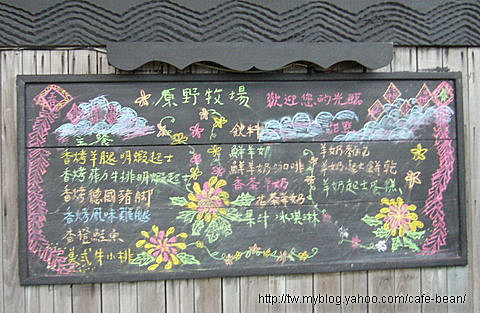 原野牧場
歡迎您的光臨
主餐
香烤羊腿明蝦起士
香烤菲力牛排明蝦起士
香烤德國豬腳
香烤風味雞腿
香橙鮭魚
美式牛小排
飲料
鮮羊奶
鮮羊奶咖啡
香茶羊奶
花茶羊奶
果汁 冰淇淋
甜點
羊奶奶酪
羊奶起士餅乾
羊奶起士蛋糕
http://tw.myblog.yahoo.com/cafe-bean/